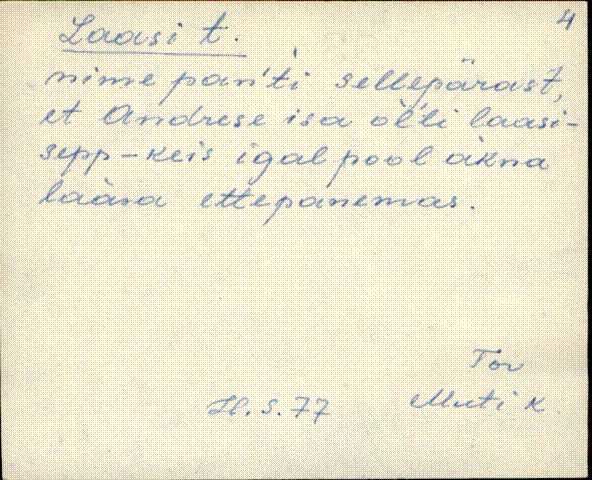 4
Laasi t.
nime pan'ti sellepärast,
et Andrese isa òl'li laasi-
sepp – keis igal pool àkna
laàsa ettepanemas.
Tor
H. S. 77 Muti k.